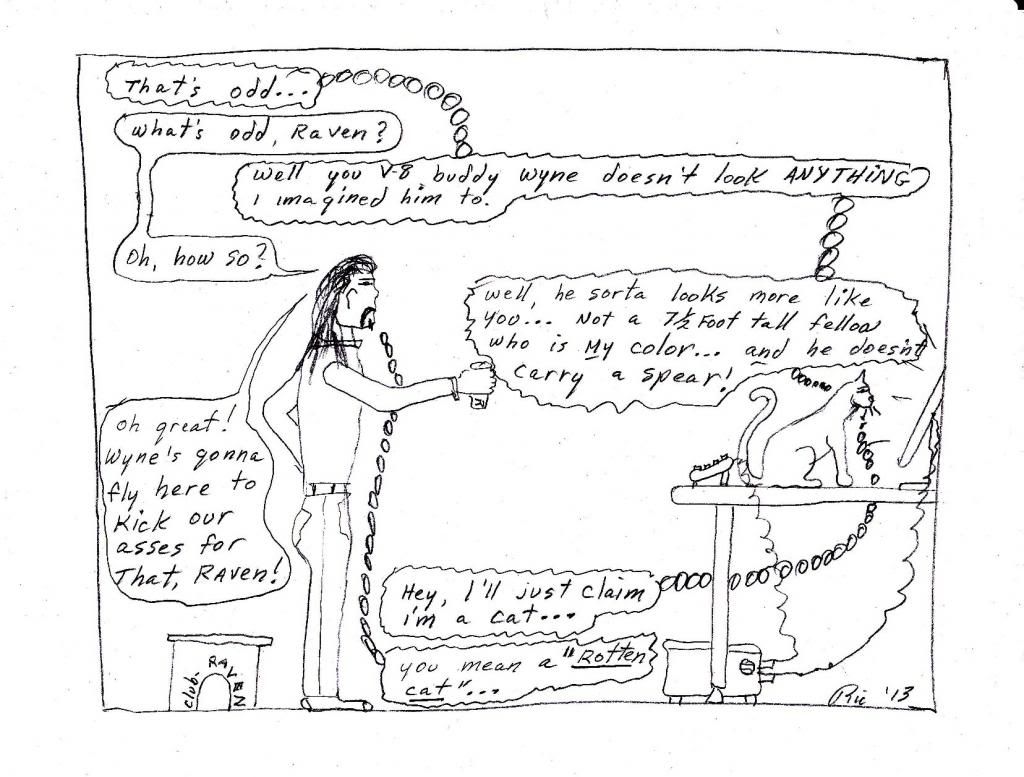 That's odd...
What's odd, Raven?
Well you V-8 buddy Wyne doesn't look ANYTHING
I imagined him to.
Oh, how so?
Well, he sorta looks more like
you... Not a 7½ Foot tall fellow
who is My color... and he doesn't
carry a spear!
Oh great!
Wyne's gonna
fly here to
Kick our
asses for
That, Raven!
Hey, I'll just claim
I'm a cat...
you mean a "Rotten
cat"...
Club RAVEN
Ric '13